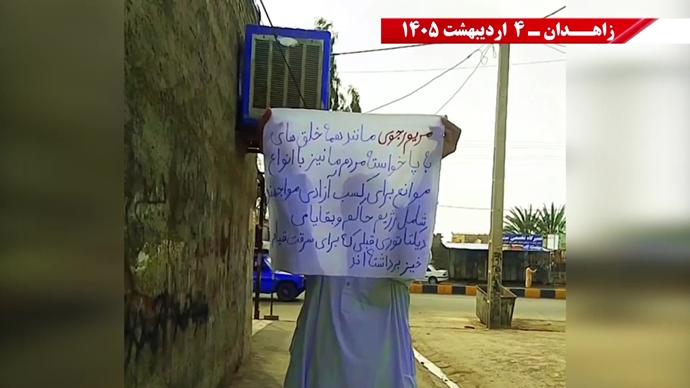 زاهـدان ـ ۴ اردیبهشت ۱۴۰۵
مریم رجوی مانند همه خلق های
به پا خواسته مردم ما نیز با انواع
موانع برای کسب آزادی مواجهند
شامل رژیم حاکم و بقایای
دیکتاتوری قبلی که برای سرقت قیام
خیز برداشته اند